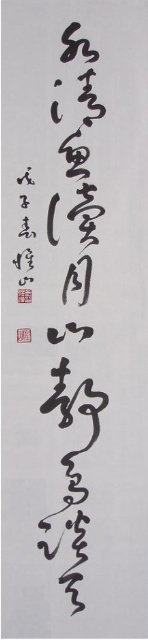 水清魚讀月山靜鳥談天
戊子春惟山